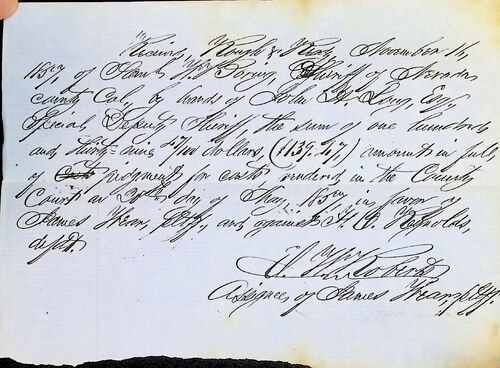 Received, Rough & Ready, November 14,
1857, of Saml. W. Boring, Sheriff of Nevada
county Cal., by hands of John H. Love, Esq.,
Special Deputy Sheriff, the sum of one hundred
and thirty-nine 47/100 dollars, ($139.47,) amount in full
of judgment for costs rendered in the County
Court on 20th day of May, 1857, in favor of
James Wren, Plff., and against H. P. Reynolds,
deft.
E. W. Roberts
Assignee of James Wren, plff.